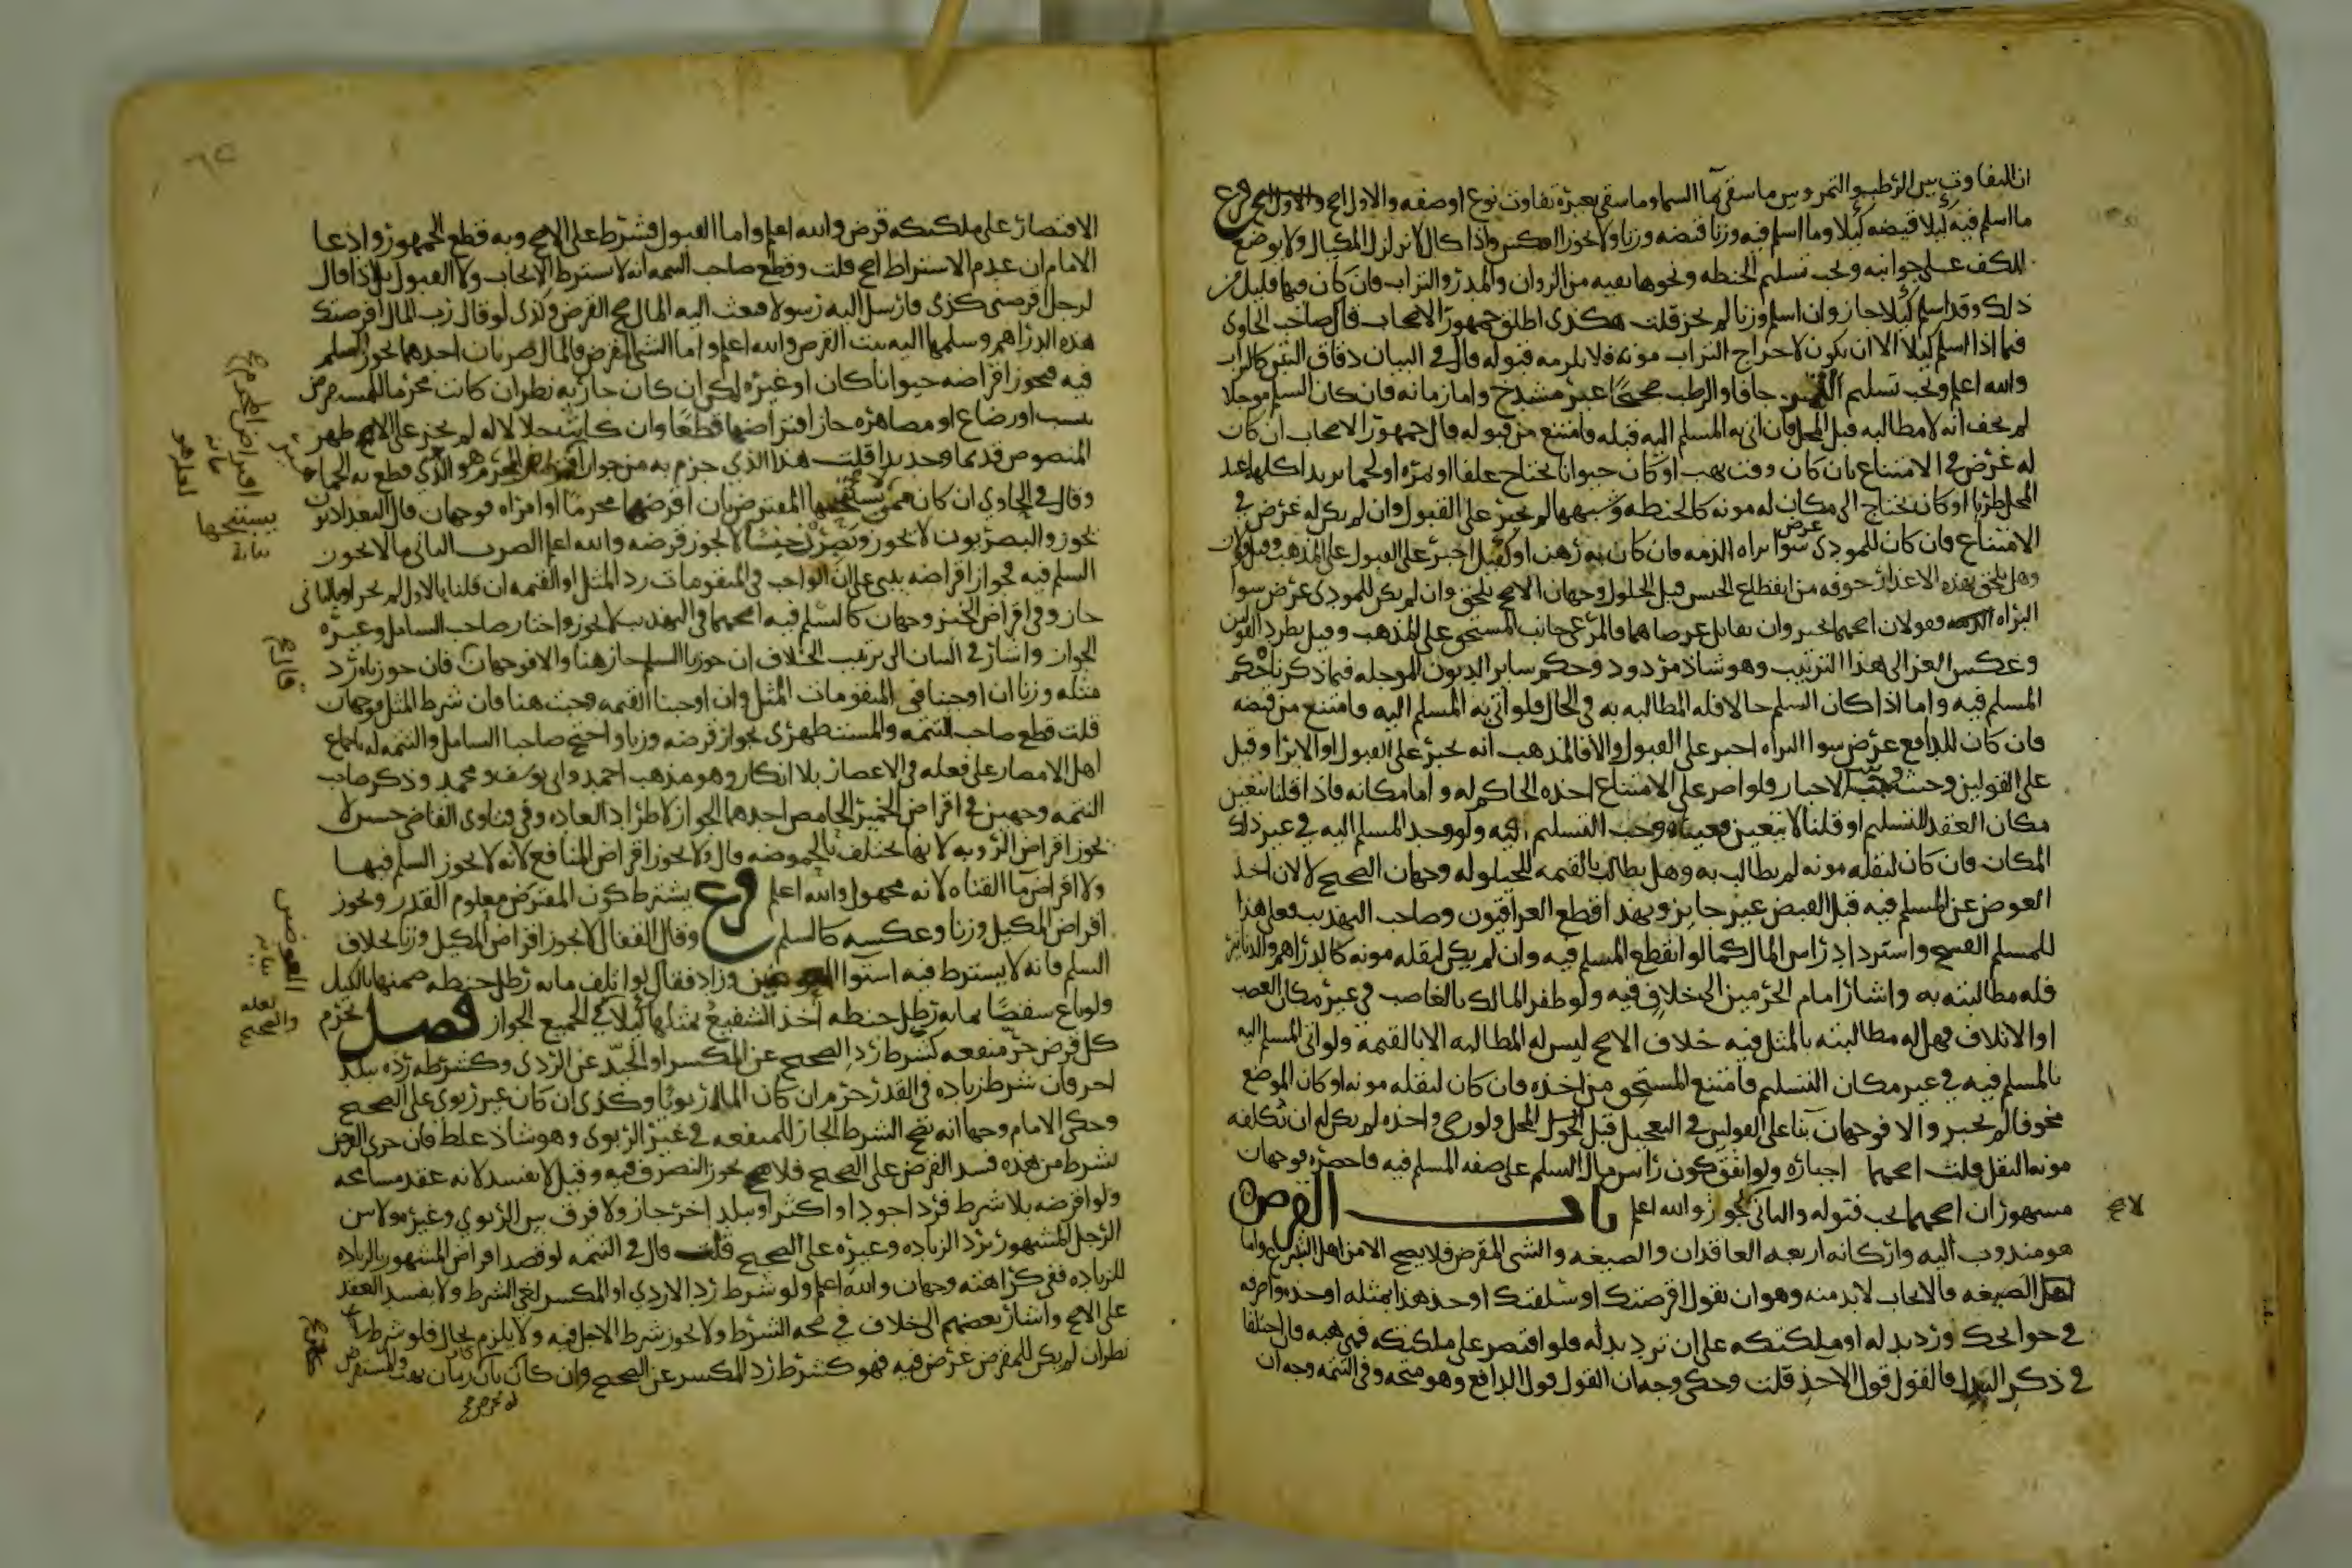 ان التفاوت بين الرطب والتمر وبين ما سقي بماء السماء وما سقي بغيره تفاوت نوع او صفه والاول اصح فرع
ما اسلم فيه كيلا قبضه كيلا وما اسلم فيه وزنا قبضه وزنا ولا يجوز العكس واذا كال لا يزلزل المكيال ولا يوضع
الكف على جوانبه ويجب تسليم الحنطه ونحوها نقيه من الزوان والمدر والتراب فان كان فيها قليل من
ذلك وقد اسلم كيلا جاز وان اسلم وزنا لم يجز قلت هكذى اطلق جمهور الاصحاب قال صاحب الحاوى
فيما اذا اسلم كيلا الا ان يكون لاخراج التراب مونه فلا يلزمه قبوله قال في البيان دقاق التبن كالتراب
والله اعلم ويجب تسليم التمر جافا والرطب صحيحا غير مشدخ واما زمانه فان كان السلم موجلا
لم يخف انه لا مطالبه قبل المحل فان اتى به المسلم اليه قبله فامتنع من قبوله قال جمهور الاصحاب ان كان
له غرض في الامتناع بان كان وقت نهب او كان حيوانا يحتاج علفا او ثمره او لحما يريد اكلها عند
المحل طريا او كان يحتاج الى مكان له مونه كالحنطه وشبهها لم يجبر على القبول وان لم يكن له غرض في
الامتناع فان كان للمودى غرض سوا براه الذمه فان كان به رهن او كفيل اجبر على القبول على المذهب وقيل قولان
وهل يلحق بهذه الاعذار خوفه من انقطاع الجنس قبل الحلول وجهان الاصح يلحق وان لم يكن للمودى غرض سوا
البراه فقولان اصحهما يجبر وان تقابل غرضاهما فالمرعى جانب المستحق على المذهب وقيل بطرد القولين
وعكس الغزالى هذا الترتيب وهو شاذ مردود وحكم ساير الديون الموجله فيما ذكرنا حكم
المسلم فيه واما اذا كان السلم حالا فله المطالبه به في الحال فلو اتى به المسلم اليه فامتنع من قبضه
فان كان للدافع غرض سوا البراه اجبر على القبول والا فالمذهب انه يجبر على القبول او الابرا وقيل
على القولين وحيث ثبت الاجبار فلو اصر على الامتناع اخذه الحاكم له واما مكانه فاذا قلنا يتعين
مكان العقد للتسليم او قلنا لا يتعين فعيناه وجب التسليم فيه ولو وجد المسلم اليه في غير ذلك
المكان فان كان لنقله مونه لم يطالب به وهل يطالب بالقيمه للحيلوله وجهان الصحيح لا لان اخذ
العوض عن المسلم فيه قبل القبض غير جايز وبهذا قطع العراقيون وصاحب التهذيب فعلى هذا
للمسلم الفسخ واسترداد راس المال كما لو انقطع المسلم فيه وان لم يكن لنقله مونه كالدراهم والدنانير
فله مطالبته به واشار امام الحرمين الى خلاف فيه ولو ظفر المالك بالغاصب في غير مكان الغصب
او الاتلاف فهل له مطالبته بالمثل فيه خلاف الاصح ليس له المطالبه الا بالقيمة ولو اتى المسلم اليه
بالمسلم فيه في غير مكان التسليم فامتنع المستحق من اخذه فان كان لنقله مونه او كان الموضع
مخوفا لم يجبر والا فوجهان بنا على القولين في التعجيل قبل المحل ولو رضى واخذه لم يكن له ان تكلفه
مونه النقل قلت اصحهما اجباره ولو اتفق كون راس مال السلم على صفه المسلم فيه فاحضره فوجهان
مشهوران اصحهما يجب قبوله والثانى لا يجوز والله اعلم باب القرض
هو مندوب اليه واركانه اربعه العاقدان والصيغه والشى المقرض فلا يصح الا من اهل التبرع واما
الصيغه فالايجاب لا بد منه وهو ان يقول اقرضتك او اسلفتك او خذ هذا بمثله او خذه واصرفه
في حوايجك ورد بدله او ملكتكه على ان ترد بدله فلو اقتصر على ملكتكه فهى هبه فان اختلفا
في ذكر البدل فالقول قول الاخذ قلت وحكى وجه ان القول قول الدافع وهو متجه وفي التتمه وجه ان
الاقتصار على ملكتكه قرض والله اعلم واما القبول فشرط على الاصح وبه قطع الجمهور وادعا
الامام ان عدم الاشتراط اصح قلت وقطع صاحب التتمه انه لا يشترط الايجاب ولا القبول بل اذا قال
لرجل اقرضنى كذى فارسل اليه رسولا فبعث اليه المال صح القرض وكذى لو قال رب المال اقرضتك
هذه الدراهم وسلمها اليه ثبت القرض والله اعلم واما الشى المقرض فالمال ضربان احدهما يجوز السلم
فيه فيجوز اقراضه حيوانا كان او غيره لكن ان كان جاريه نظر ان كانت محرما للمستقرض
بنسب او رضاع او مصاهره جاز اقتراضها قطعا وان كانت حلالا له لم يجز على الاظهر
المنصوص قديما وجديدا قلت هذا الذي جزم به من جواز اقراض المحرم هو الذي قطع به الجماهير
وقال في الحاوى ان كان ممن لا يستبيحها المقترض بان اقرضها محرما او امراه فوجهان قال البغداديون
يجوز والبصريون لا يجوز وتصير جنسا لا يجوز قرضه والله اعلم الضرب الثانى ما لا يجوز
السلم فيه فجواز اقراضه يبنى على ان الواجب في المتقومات رد المثل او القيمه ان قلنا بالاول لم يجز او بالثانى
جاز وفي اقراض الخبز وجهان كالسلم فيه اصحهما في التهذيب لا يجوز واختار صاحب الشامل وغيره
الجواز واشار في البيان الى ترتيب الخلاف ان جوزنا السلم جاز هنا والا فوجهان فان جوزناه رد
مثله وزنا ان اوجبنا في المتقومات المثل وان اوجبنا القيمه وجبت هنا فان شرط المثل فوجهان
قلت قطع صاحب التتمه والمستظهرى بجواز قرضه وزنا واحتج صاحبا الشامل والتتمه له باجماع
اهل الامصار على فعله في الاعصار بلا انكار وهو مذهب احمد وابى يوسف ومحمد وذكر صاحب
التتمه وجهين في اقراض الخمير الحامض احدهما الجواز لاطراد العاده وفي فتاوى القاضى حسين لا
يجوز اقراض الروبه لانها تختلف بالحموضه قال ولا يجوز اقراض المنافع لانه لا يجوز السلم فيها
ولا اقراض ما القناه لانه مجهول والله اعلم فرع يشترط كون المقترض معلوم القدر ويجوز
اقراض المكيل وزنا وعكسه كالسلم وقال القفال لا يجوز اقراض المكيل وزنا بخلاف
السلم فانه لا يشترط فيه استوا العوضين وزاد فقال لو اتلف مايه رطل حنطه ضمنها بالكيل
ولو باع شقصا بمايه رطل حنطه اخذ الشفيع بمثلها كيلا في الجميع الجواز فصل يحرم
كل قرض جر منفعه كشرط رد الصحيح عن المكسر او الجيد عن الردى وكشرطه رده ببلد
اخر فان شرط زياده في القدر حرم ان كان المال ربويا وكذى ان كان غير ربوى على الصحيح
وحكى الامام وجها انه يصح الشرط الجار للمنفعه في غير الربوى وهو شاذ غلط فان جرى القرض
بشرط من هذه فسد القرض على الصحيح فلا يجوز التصرف فيه وقيل لا يفسد لانه عقد مسامحه
ولو اقرضه بلا شرط فرد اجود او اكثر او ببلد اخر جاز ولا فرق بين الربوي وغيره ولا بين
الرجل المشهور برد الزياده وغيره على الصحيح قلت قال في التتمه لو قصد اقراض المشهور بالزياده
للزياده ففي كراهته وجهان والله اعلم ولو شرط رد الاردى او المكسر لغى الشرط ولا يفسد العقد
على الاصح واشار بعضهم الى خلاف في صحه الشرط ولا يجوز شرط الاجل فيه ولا يلزم بحال فلو شرط
نظر ان لم يكن للمقرض غرض فيه فهو كشرط رد المكسر عن الصحيح وان كان بان كان زمان نهب والمستقرض